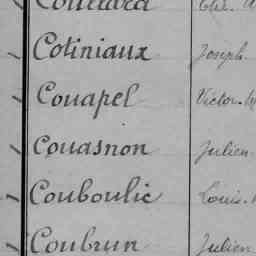 Cotiniaux Joseph
Couapel Victor
Couasnon Julien
Couboulic Louis
Coubrun Julien